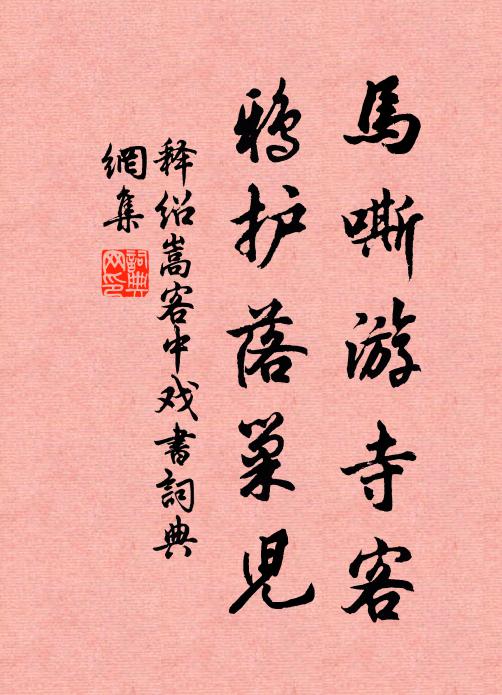 馬嘶游寺客
鸦护落巢児
释绍嵩客中戏书詞典
網集
詞典
网印